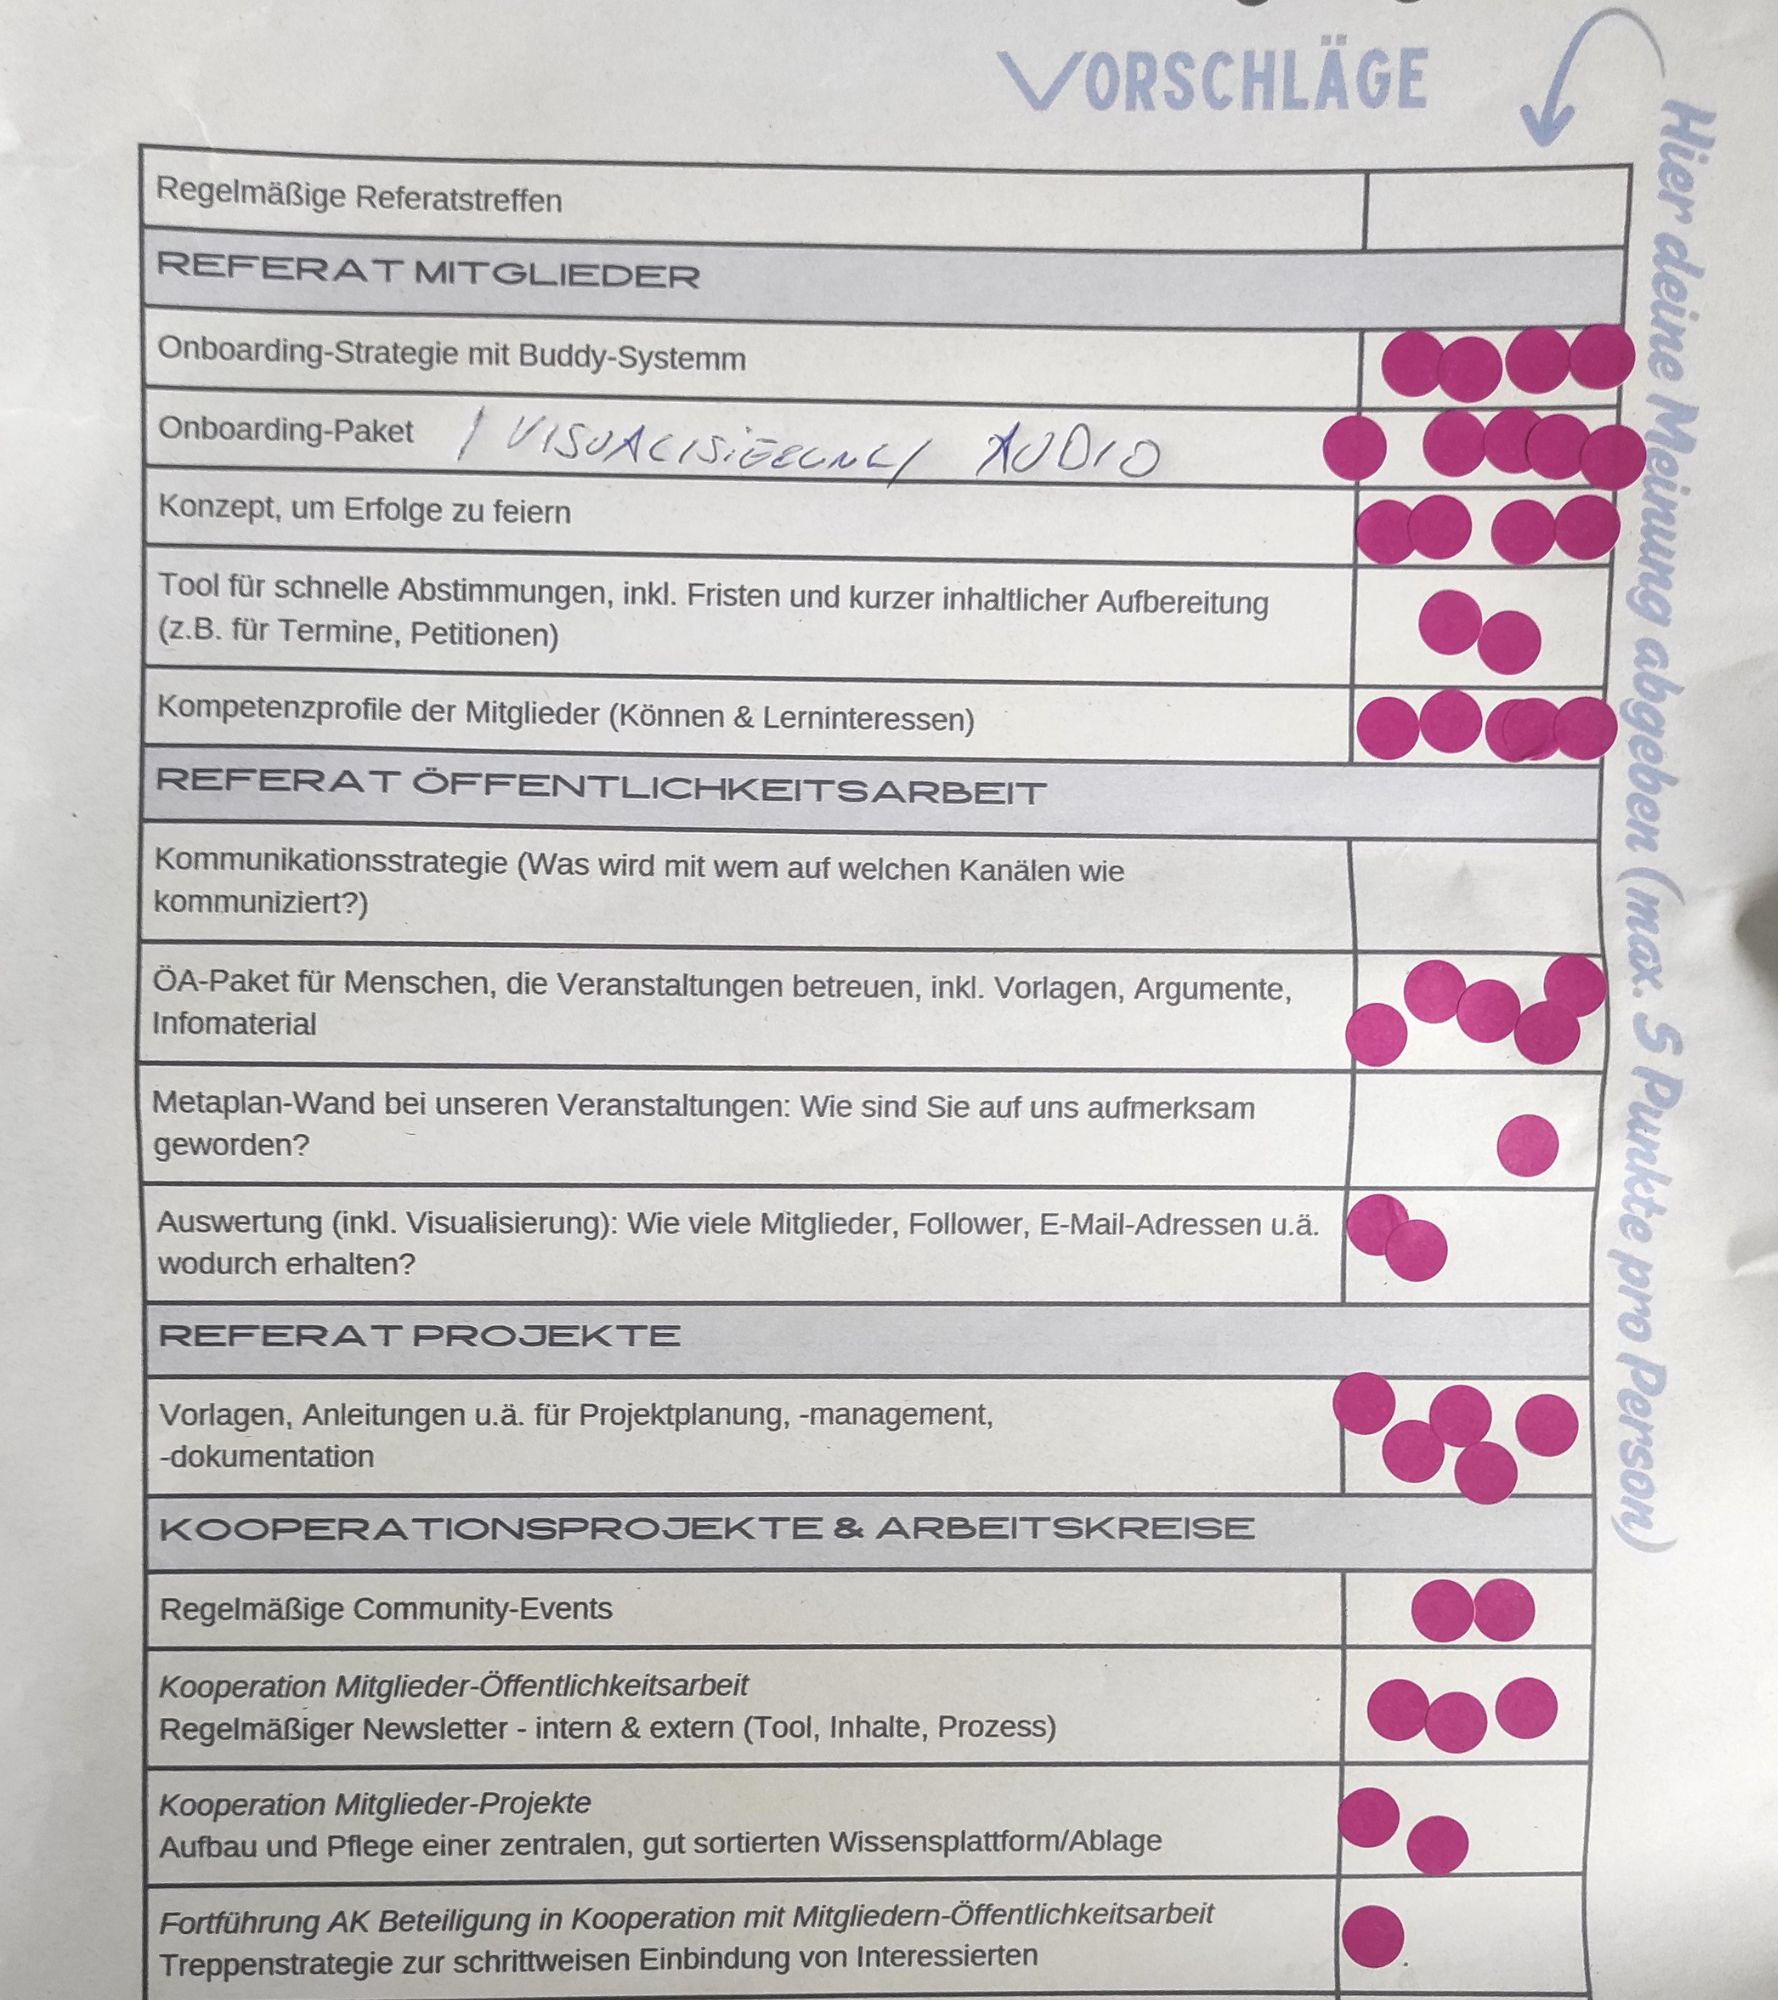 VORSCHLÄGE
Hier deine Meinung abgeben (max. 5 Punkte pro Person)
Regelmäßige Referatstreffen
REFERAT MITGLIEDER
Onboarding-Strategie mit Buddy-Systemm
Onboarding-Paket / VISUALISIERUNG / AUDIO
Konzept, um Erfolge zu feiern
Tool für schnelle Abstimmungen, inkl. Fristen und kurzer inhaltlicher Aufbereitung
(z.B. für Termine, Petitionen)
Kompetenzprofile der Mitglieder (Können & Lerninteressen)
REFERAT ÖFFENTLICHKEITSARBEIT
Kommunikationsstrategie (Was wird mit wem auf welchen Kanälen wie
kommuniziert?)
ÖA-Paket für Menschen, die Veranstaltungen betreuen, inkl. Vorlagen, Argumente,
Infomaterial
Metaplan-Wand bei unseren Veranstaltungen: Wie sind Sie auf uns aufmerksam
geworden?
Auswertung (inkl. Visualisierung): Wie viele Mitglieder, Follower, E-Mail-Adressen u.ä.
wodurch erhalten?
REFERAT PROJEKTE
Vorlagen, Anleitungen u.ä. für Projektplanung, -management,
-dokumentation
KOOPERATIONSPROJEKTE & ARBEITSKREISE
Regelmäßige Community-Events
Kooperation Mitglieder-Öffentlichkeitsarbeit
Regelmäßiger Newsletter - intern & extern (Tool, Inhalte, Prozess)
Kooperation Mitglieder-Projekte
Aufbau und Pflege einer zentralen, gut sortierten Wissensplattform/Ablage
Fortführung AK Beteiligung in Kooperation mit Mitgliedern-Öffentlichkeitsarbeit
Treppenstrategie zur schrittweisen Einbindung von Interessierten